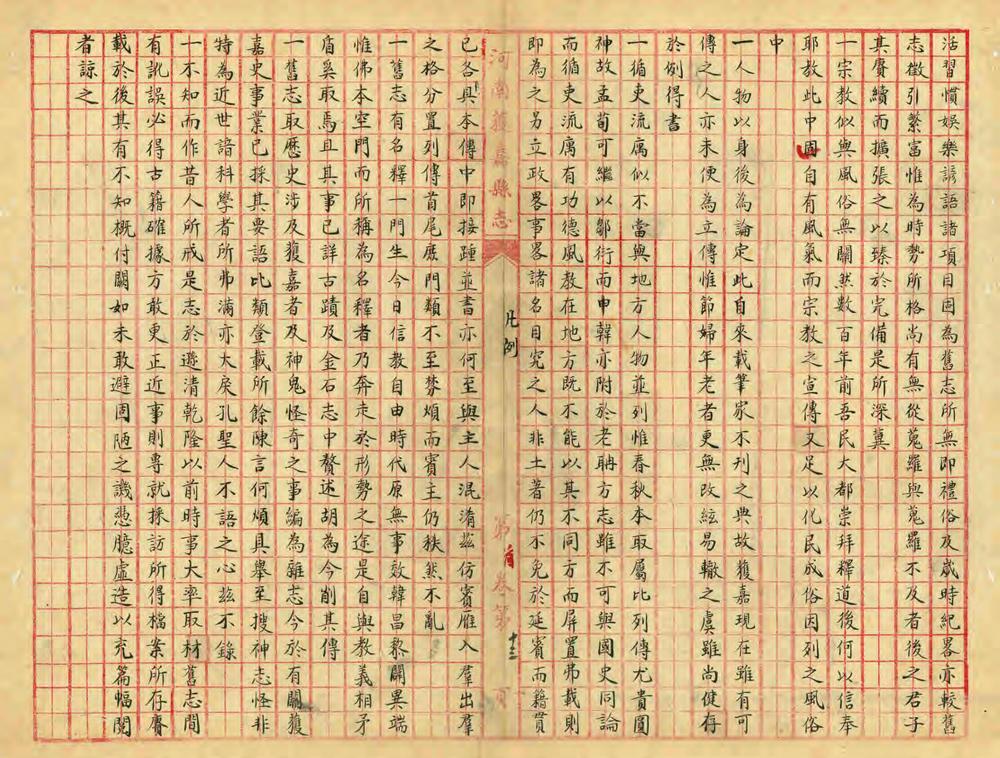 活習慣娛樂諺語諸項目因為舊志所無即禮俗及歲時紀畧亦較舊
志徵引繁富惟為時勢所格尚有無從蒐羅與蒐羅不及者後之君子
其賡續而擴張之以臻於完備是所深冀
一宗教似與風俗無關然數百年前吾民大都崇拜釋道後何以信奉
耶教此中固自有風氣而宗教之宣傳又足以化民成俗因列之風俗
中
一人物以身後為論定此自來載筆家不刊之典故獲嘉現在雖有可
傳之人亦未便為立傳惟節婦年老者更無改絃易轍之虞雖尚健存
於例得書
一循吏流寓似不當與地方人物並列惟春秋本取屬比列傳尤貴圓
神故孟荀可繼以鄒衍而申韓亦附於老聃方志雖不可與國史同論
而循吏流寓有功德風教在地方既不能以其不同方而屏置弗載則
即為之另立政畧事畧諸名目究之人非土著仍不免於延賓而籍貫
河南獲嘉縣志
凡例
第首卷第十三頁
已各具本傳中即接踵並書亦何至與主人混淆茲仿賓雁入羣出羣
之格分置列傳首尾庶門類不至棼煩而賓主仍秩然不亂
一舊志有名釋一門生今日信教自由時代原無事效韓昌黎闢異端
惟佛本空門而所稱為名釋者乃奔走於形勢之途是自與教義相矛
盾奚取焉且其事已詳古蹟及金石志中贅述胡為今削其傳
一舊志取歷史涉及獲嘉者及神鬼怪奇之事編為雜志今於有關獲
嘉史事業已採其要語比類登載所餘陳言何煩具舉至搜神志怪非
特為近世諳科學者所弗滿亦大戾孔聖人不語之心茲不錄
一不知而作昔人所戒是志於遜清乾隆以前時事大率取材舊志間
有訛誤必得古籍確據方敢更正近事則專就採訪所得檔案所存賡
載於後其有不知概付闕如未敢避固陋之譏憑臆虛造以充篇幅閱
者諒之